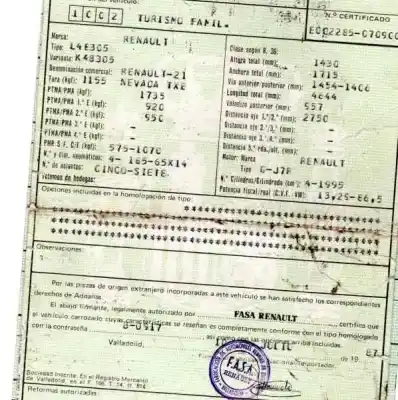 Nº CERTIFICADO
1 C C 2 TURISMO FAMIL.
Marca: RENAULT
Tipo: L48305
Variante: K48305
Denominación comercial: RENAULT-21
Tara (kgf): 1155 NEVADA TXE
PTMA/PMA (kgf): 1735
PTMA/PMA 1.º E (kgf): 920
PTMA/PMA 2.º E (kgf): 950
PTMA/PMA 3.º E (kgf): -
PTMA/PMA 4.º E (kgf): -
PMR S.F. C/F (kgf): 575-1070
N.º y dim. neumáticos: 4- 165-65X14
N.º de asientos: CINCO-SIETE
Volumen de bodegas:
Clase según R. 36:
Altura total (mm): 1430
Anchura total (mm): 1715
Vía anterior/posterior (mm): 1454-1406
Longitud total (mm): 4644
Voladizo posterior (mm): 957
Distancia eje 1.º/2.º (mm): 2750
Distancia eje 2.º/3.º (mm): -
Distancia eje 3.º/4.º (mm): -
Distancia 5.ª rda./ult. (mm): -
Motor: Marca RENAULT
Tipo G-J7R
N.º Cilindros/Cilindrada (cm³): 4-1995
Potencia fiscal/real (C.V.F./kW): 13,29-88,5
Opciones incluidas en la homologación de tipo:
Observaciones:
Por las piezas de origen extranjero incorporadas a este vehículo se han satisfecho los correspondientes
derechos de Aduanas.
El abajo firmante, legalmente autorizado por FASA RENAULT certifica que
el vehículo carrozado cuyas características se reseñan es completamente conforme con el tipo homologado
con la contraseña B-0917 así como con las opciones arriba incluidas.
Valladolid, de 19 87
F.A.S.A.
RENAULT
Sociedad inscrita: En el Registro Mercantil
de Valladolid, en el F. 106, T. 14, H. 614
Reformas autorizadas.